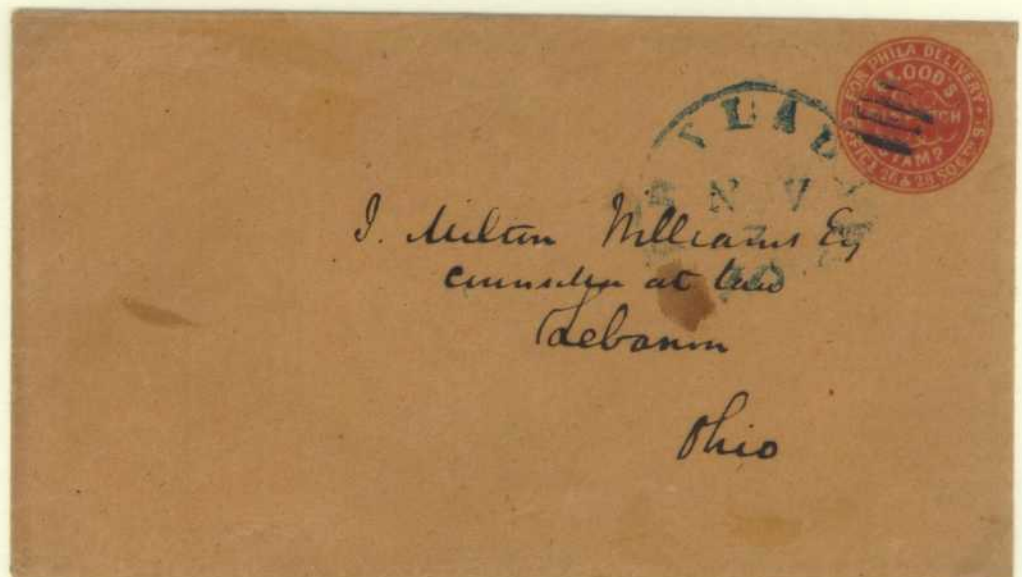 FOR PHILA DELIVERY
BLOOD'S
STAMP
OFFICE 26 & 28 SO 6TH S.
J. Milton Williams Esq
Counselor at Law
Lebanon
Ohio